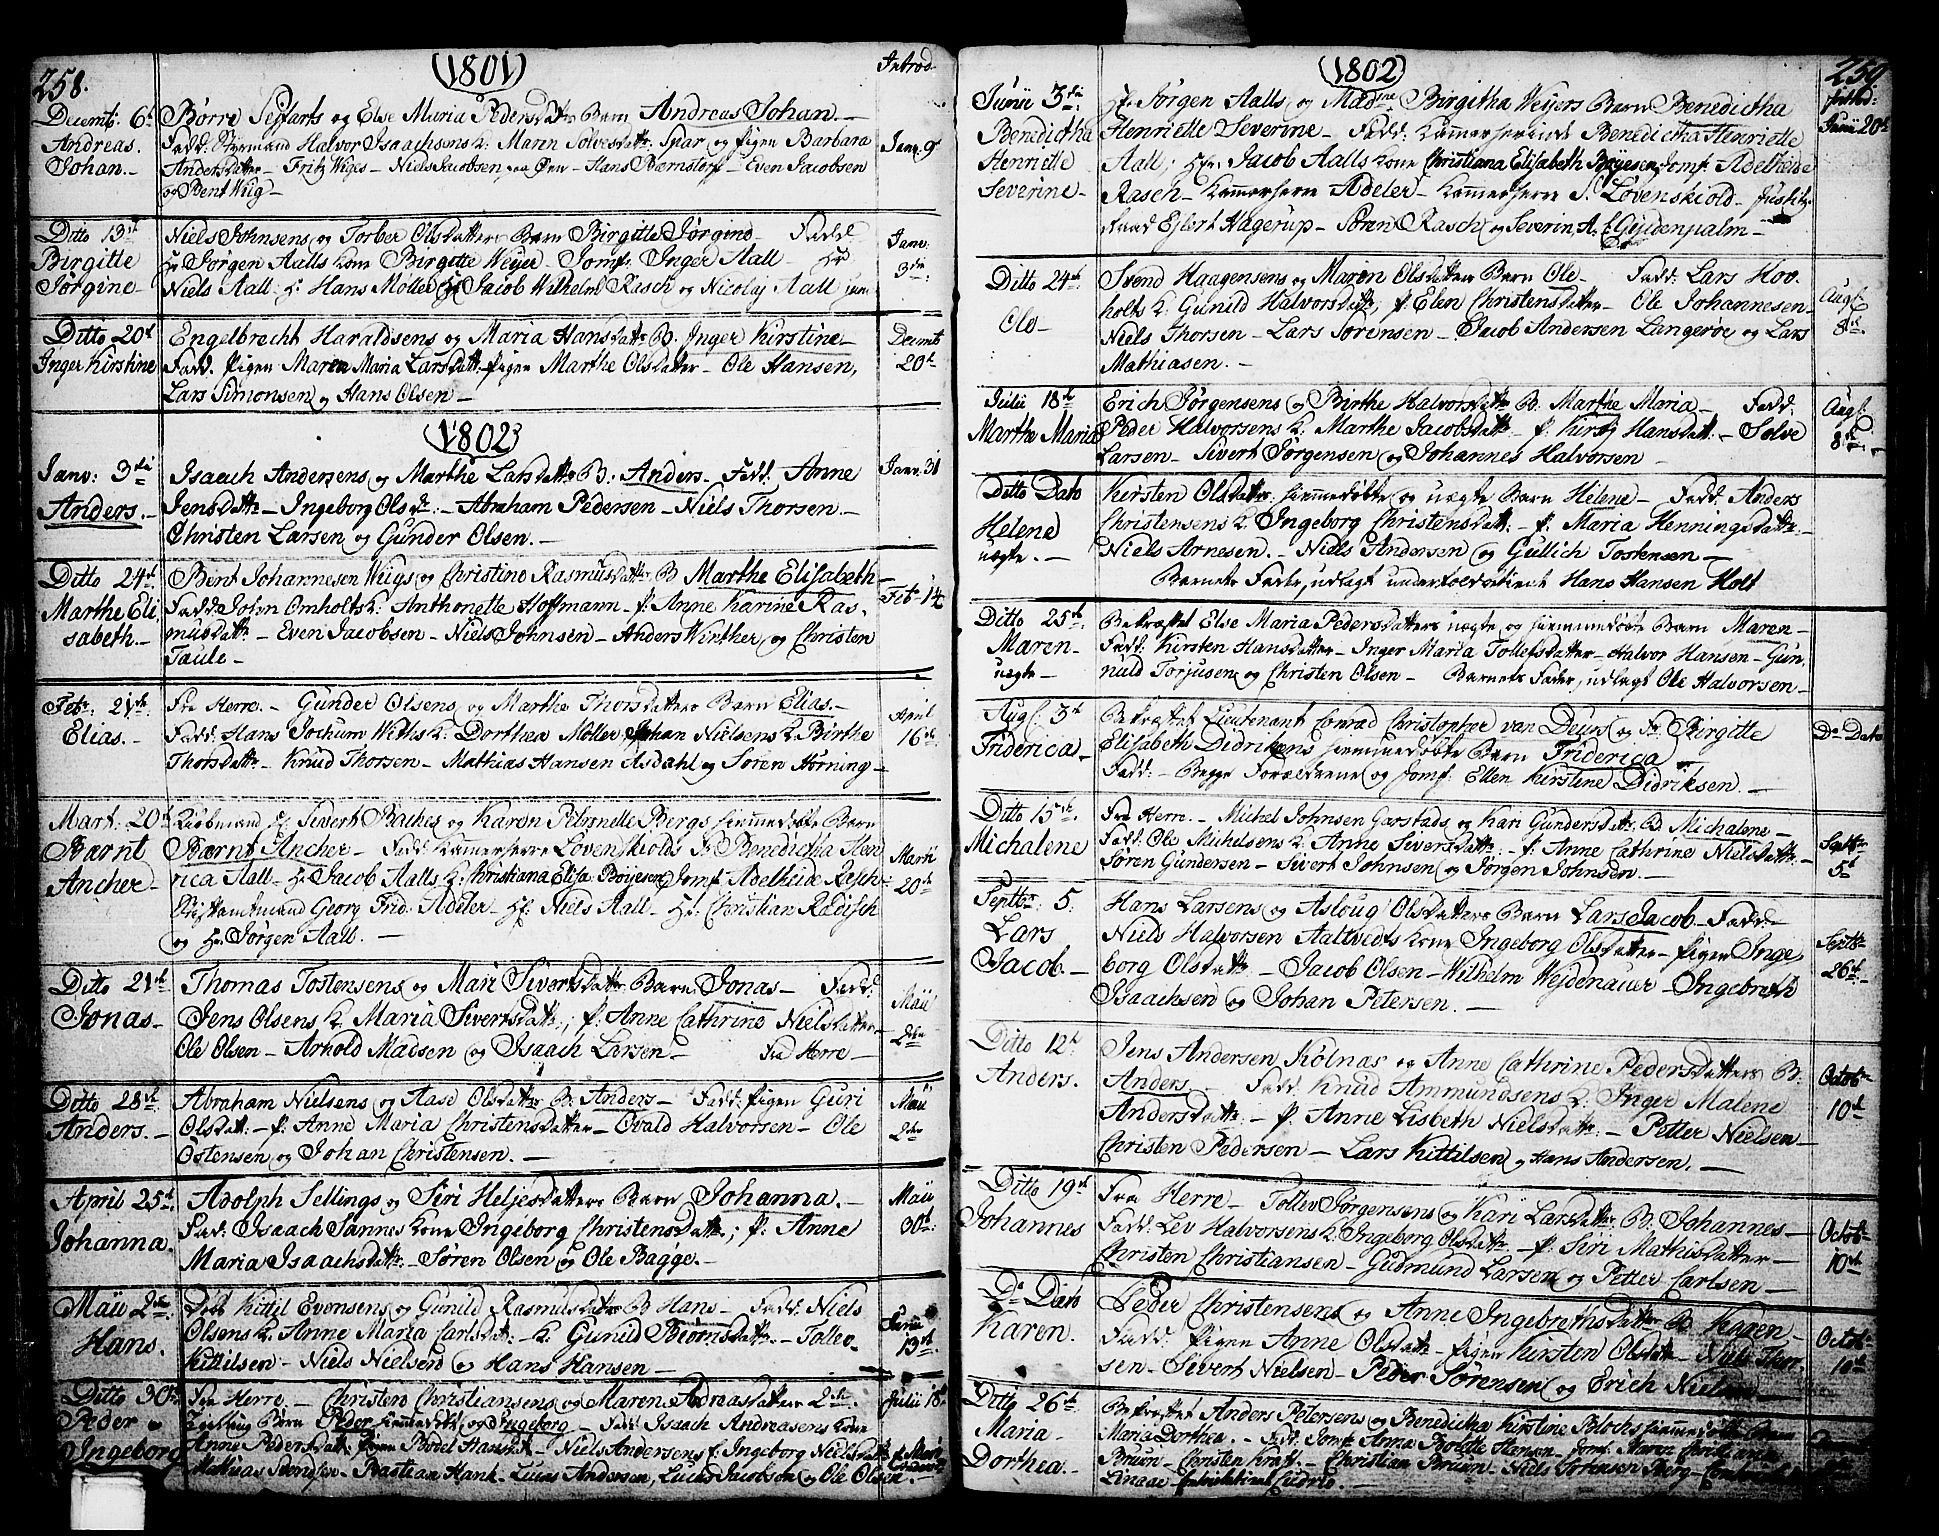 258.
(1801)
Introd.
Decembr: 6te
Andreas
Johan.
Børre Sejfarts og Else Maria Pedersdatters Barn Andreas Johan.
Fadd: Styrmand Halvor Isaachsens k: Maren Solvesdatter Spar og Pigen Barbara
Andersdatter - Fritz Wiigs - Niels Jacobsen paa Øen - Hans Bernstorf - Even Jacobsen
og Bent Wiig -
Janv: 9
Ditto 13de
Birgitte
Jørgine
Niels Johnsens og Torber Olsdatters Barn Birgitte Jørgine - Fadd:
Hr Jørgen Aalls kone Birgitte Weyer - Jomf: Inger Aall - Hr
Niels Aall - Hr Hans Møller Hr Jacob Wilhelm Rasch og Nicolaj Aall jun
Janv:
3die
Ditto 20de
Inger Kirstine
Engelbrecht Haraldsens og Maria Hansdattr B. Inger Kirstine -
Fadd. Pigen Maren Maria Larsdattr - Pigen Marthe Olsdatter - Ole Hansen,
Lars Simonsen og Hans Olsen -
Decembr
20de
(1802)
Janv: 3die
Anders.
Isaach Andersens og Marthe Larsdatters B: Anders. Fadd: Anne
Jensdattr - Ingeborg Olsdr: - Abraham Pedersen - Niels Thorsen -
Christen Larsen og Gunder Olsen. -
Janv: 31
Ditto 24de
Marthe Eli
sabeth. -
Bent Johannesen Wiigs og Christine Rasmusdattr B Marthe Elisabeth -
Fadd: John Omholts k: Anthonette Hoffmann - P: Anne Karine Ras-
musdattr - Even Jacobsen - Niels Johnsen - Anders Winther og Christen
Taule -
Febr 14
Febr: 21de
Elias. -
Fra Herre. - Gunder Olsens og Marthe Thorsdatters Barn Elias. -
Fadd: Hans Jochum Withs k: Dorthea Møller Johan Nielsens k: Birthe
Thorsdattr - Knud Thorsen - Mathias Hansen Asdahl og Søren Hørning -
April
16de
Mart: 20de
Barnt
Ancher -
Kiøbmand Hr Sivert Baches og Karen Petronelle Bergs hiemmedøbte Barn
Bærnt Ancher - Fadd: Kammerherre Løvenskiolds Fr Benedictha Hen
rica Aall - Hr Jacob Aalls k: Christiana Elisa Boyesen Jomf Adelheide Rasch -
Stiftamtmand Georg Frid. Adeler - Hr: Niels Aall - Hr: Christian Radisch
og Hr Jørgen Aall. -
Martii
20de
Ditto 21de
Jonas -
Thomas Tostensens og Mari Siversdattr Barn: Jonas - Fadd:
Jens Olsens k: Maria Sivertsdattr; P: Anne Cathrine Nielsdatter -
Ole Olsen - Arnold Madsen og Isaach Larsen - Fra Herre -
Maii
2den
Ditto 28de
Anders. -
Abraham Nielsens og Aase Olsdatter B. Anders - Fadd: Pigen Guri
Olsdatt: - P: Anne Maria Christensdatter - Ovald Halvorsen - Ole
Ostensen og Johan Christensen. -
Maii
2den
April 25de
Johanna.
Adolph Sellings og Siri Heljesdatters Barn Johanna. -
Fad: Isaach Sannes kone Ingeborg Christensdattr; P: Anne
Maria Isaachsdattr - Søren Olsen og Ole Bagge. -
Maii
30de
Maii 2den
Hans.
Døbt Kittil Evensens og Gunild Rasmusdatter B Hans - Fadd: Niels
Olsens k: Anne Maria Carlsdat: - k: Gunild Biørnsdattr - Tollev
Kittilsen - Niels Nielsen og Hans Hansen -
Junii
13de
Ditto 30te
Peder -
Ingeborg
Fra Herre - Christen Christiansens og Maren Andreasdatter 2de
Tvilling Børn Peder hiemmedøbt og Ingeborg - Fadd Isaach Andreasens kone
Anne Pedersdat Pigen Bodel Hansdat - Niels Andersens P: Ingeborg Nielsdattr
Mathias Svendsen - Bastian Hank - Lucas Andersen, Lucas Jacobsen og Ole Olsen.
Julii 18de
(1802)
259.
Introd:
Junii 3die
Benedictha
Henriette
Severine -
Hr. Jørgen Aalls og Madme Birgitha Weyers Barn Benedictha
Henriette Severine - Fadd: Kammerherinde Benedictha Henriette
Aall; Hr. Jacob Aalls kone Christiana Elisabeth Boyesen, Jomf: Adelheide
Rasch - Kammerherre Adeler - Kammerherre S. Løvenskiold - Justitz-
raad Ejlert Hagerup - Søren Rasch og Severin A. Gyldenpalm -
Junii 20de
Ditto 24de
Ole -
Svend Haagensens og Maren Olsdatters Barn Ole - Fadd: Lars Hov-
holts k: Gunild Halvorsdattr, P: Elen Christensdatter - Ole Johannesen -
Niels Thorsen - Lars Sørensen - Jacob Andersen Langerøe og Lars
Mathiasen. -
Augf
8de
Julii 18de
Marthe Maria
Erich Jørgensens og Birthe Halvorsdattr B. Marthe Maria - Fadd:
Peder Halvorsens k: Marthe Jacobsdattr - P: Kirsty Hansdatt: - Sølve
Larsen - Sivert Jørgensen og Johannes Halvorsen -
Augf
8de -
Ditto Dato
Helene
uægte. -
Kirsten Olsdatter hiemmedøbte og uægte Barn Helene - Fadd: Anders
Christensens k: Ingeborg Christensdatt: - P: Maria Henningsdatter -
Niels Arnesen. - Niels Andersen og Gullich Tostensen -
Barnets Fader, udlagt Underfoldsbetient Hans Hansen Holt
Ditto 25de
Maren -
uægte -
Bekræftet Else Maria Pedersdatters uægte og hiemmedøbte Barn Maren -
Fadd: Kirsten Hansdatter - Inger Maria Tollefsdatter - Halvor Hansen - Gun-
nuld Torjusen og Christen Olsen - Barnets Fader, udlagt Ole Halvorsen -
Augf. 3de
Friderica -
Bekræftet Lieutenant Conrad Christopher van Deurs og Fr: Birgitte
Elisabeth Didrikens hiemmedøbte Barn Friderica
Fadd: - Begge Forældrene og Jomf: Ellen Kirstine Didriksen. -
Do Dato
Ditto 15de
Michalene
Fra Herre. - Michel Johnsen Garstads og Kari Gundersdattr: B. Michalene -
Fadd: Ole Michelsens k: Anne Siversdattr: - P: Anne Cathrine Nielsdattr: -
Søren Gundersen - Sivert Johnsen og Jørgen Johnsen. -
Septbr
5te
Septbr: 5.
Lars
Jacob -
Hans Larsens og Aslaug Olsdatters Barn Lars Jacob - Fadd:
Niels Halvorsen Aaltvedts kone Ingeborg Olsdatter - Pigen Inge
borg Olsdattr - Jacob Olsen - Wilhelm Wejdenauer - Ingebreth
Isaachsen og Johan Petersen. -
Septbr
26de
Ditto 12te
Anders.
Jens Andersen Kolnæs og Anne Cathrine Pedersdatters B:
Anders - Fadd: Knud Ammundsens k: Inger Malene
Andersdattr: - P: Anne Lisbeth Nielsdattr: - Petter Nielsen -
Christen Pedersen - Lars Kittilsen og Hans Andersen. -
Octobr
10de
Ditto 19de
Johannes
Fra Herre - Tollev Jørgensens og Kari Larsdattr B. Johannes -
Fadd: Lev Halvorsens k: Ingeborg Olsdattr - P: Siri Mathisdatter -
Christen Christiansen - Gudmund Larsen og Petter Carlsen -
Octobr
10de
Do Dato
Karen.
Peder Christensens og Anne Ingebrethsdatter B. Karen -
Fadd: Pigen Anne Olsdatt - Pigen Kirsten Olsdatt - Niels Thor-
sen - Sivert Nielsen - Peder Sørensen og Erich Nielsen -
Octob
10de
Ditto 26de
Maria
Dorthea -
Bekræftet Anders Petersens og Benedictha Kirstine Blochs hiemmedøbte Barn
Maria Dorthea. - Fad: Jomf: Anna Bolette Hansen - Jomf: Maren
Bruun - Christen Kraft - Christian Bruun - Niels Sørensen Berg -
Linaae